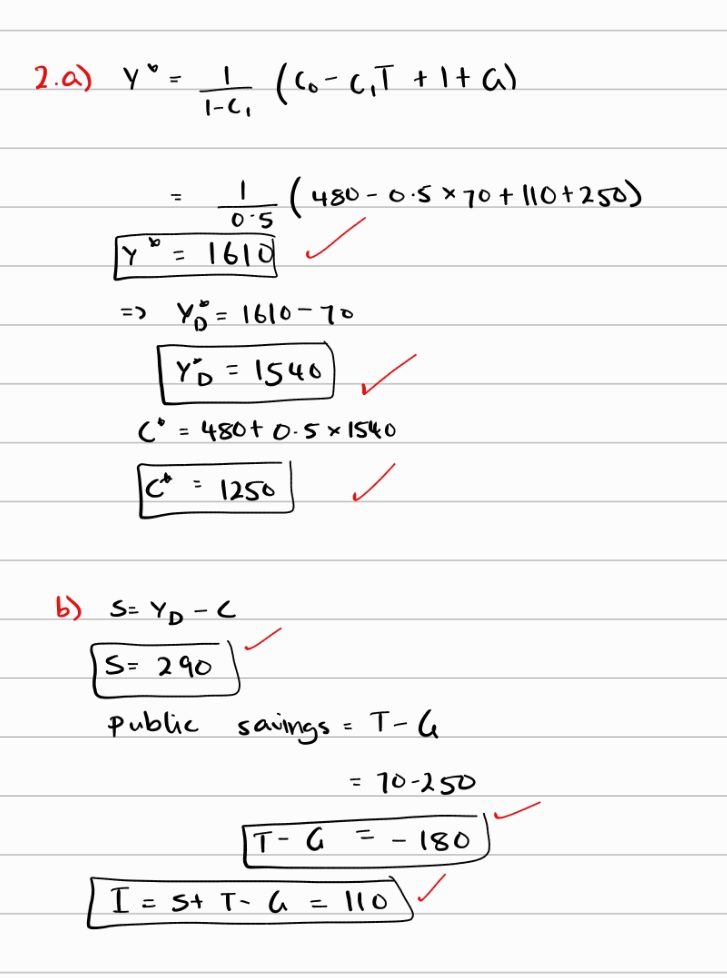 2.a) Y* = 1/(1-C₁) (C₀ - C₁T + I + G)
= 1/0.5 (480 - 0.5 × 70 + 110 + 250)
Y* = 1610
=> Y_D* = 1610 - 70
Y_D* = 1540
C* = 480 + 0.5 × 1540
C* = 1250
b) S = Y_D - C
S = 290
Public savings = T - G
= 70 - 250
T - G = - 180
I = S + T - G = 110